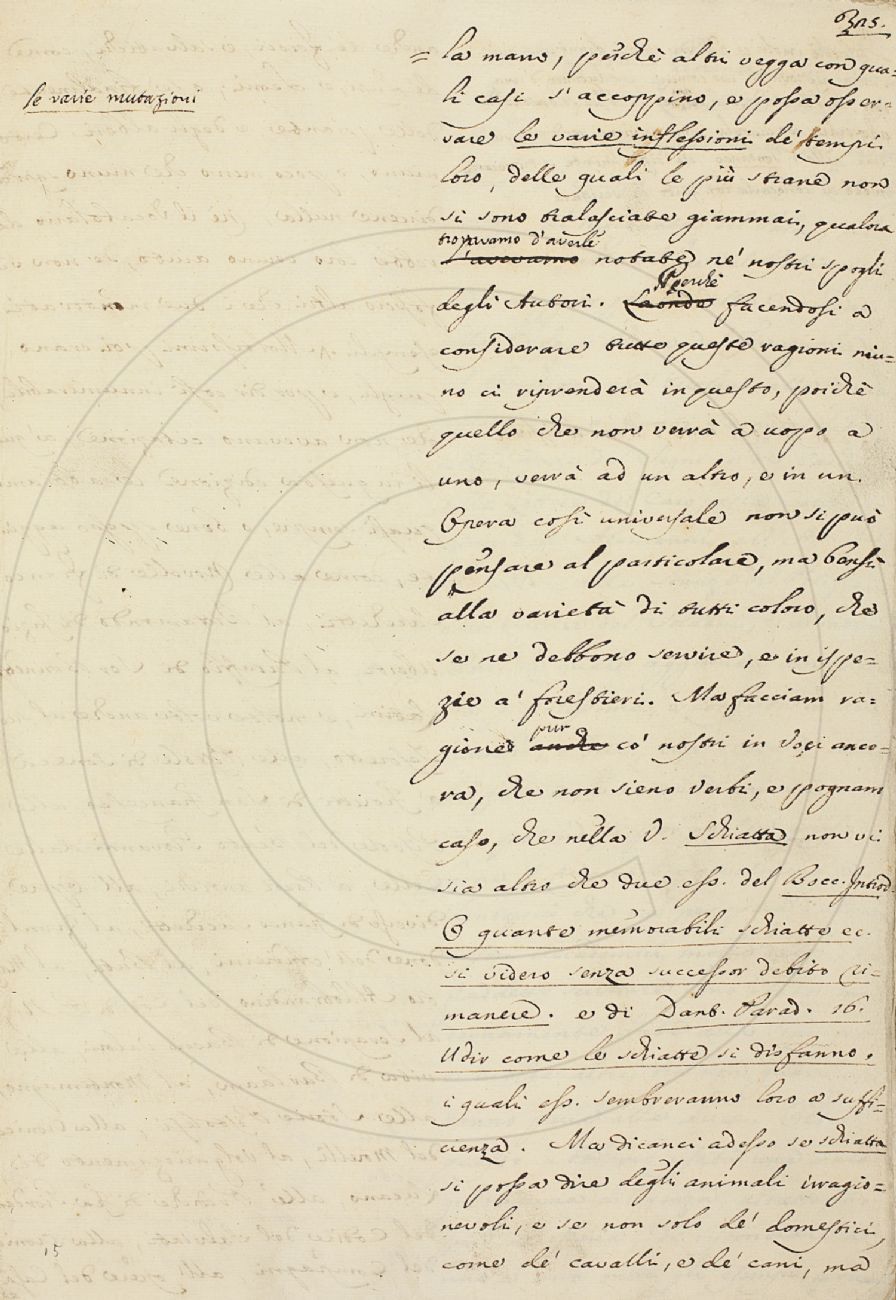 325.
= la mano, perchè altri vegga con qua-
le varie mutazioni
li casi s'accoppino, e possa osser-
vare le varie inflessioni de' tempi
loro, delle quali le più strane non
si sono tralasciate giammai, qualora
trovavamo d'averle
l'avevamo notate ne' nostri spogli
Perchè
degli Autori. Laonde facendosi a
considerare tutte queste ragioni niu=
no ci riprenderà in questo, poichè
quello che non verrà a uopo a
uno, verrà ad un altro, e in un
Opera così universale non si può
pensare al particolare, ma bensì
alla varietà di tutti coloro, che
se ne debbono servire, e in ispe=
zie a' forestieri. Ma facciam ra=
pur
gione anche co' nostri in Voci anco=
ra, che non sieno Verbi, e pognam
caso, che nella V. Schiatta non vi
sia altro che due es. del Bocc. Introd.
O quante memorabili schiatte ec.
si videro senza successor debito ri=
manere. e di Dant. Parad. 16.
Udir come le schiatte si disfanno.
i quali es. sembreranno loro a suffi=
cienza. Ma dicanci adesso se schiatta
si possa dire degli animali irragio=
nevoli, e se non solo de' domestici,
come de' cavalli, e de' cani, ma
15